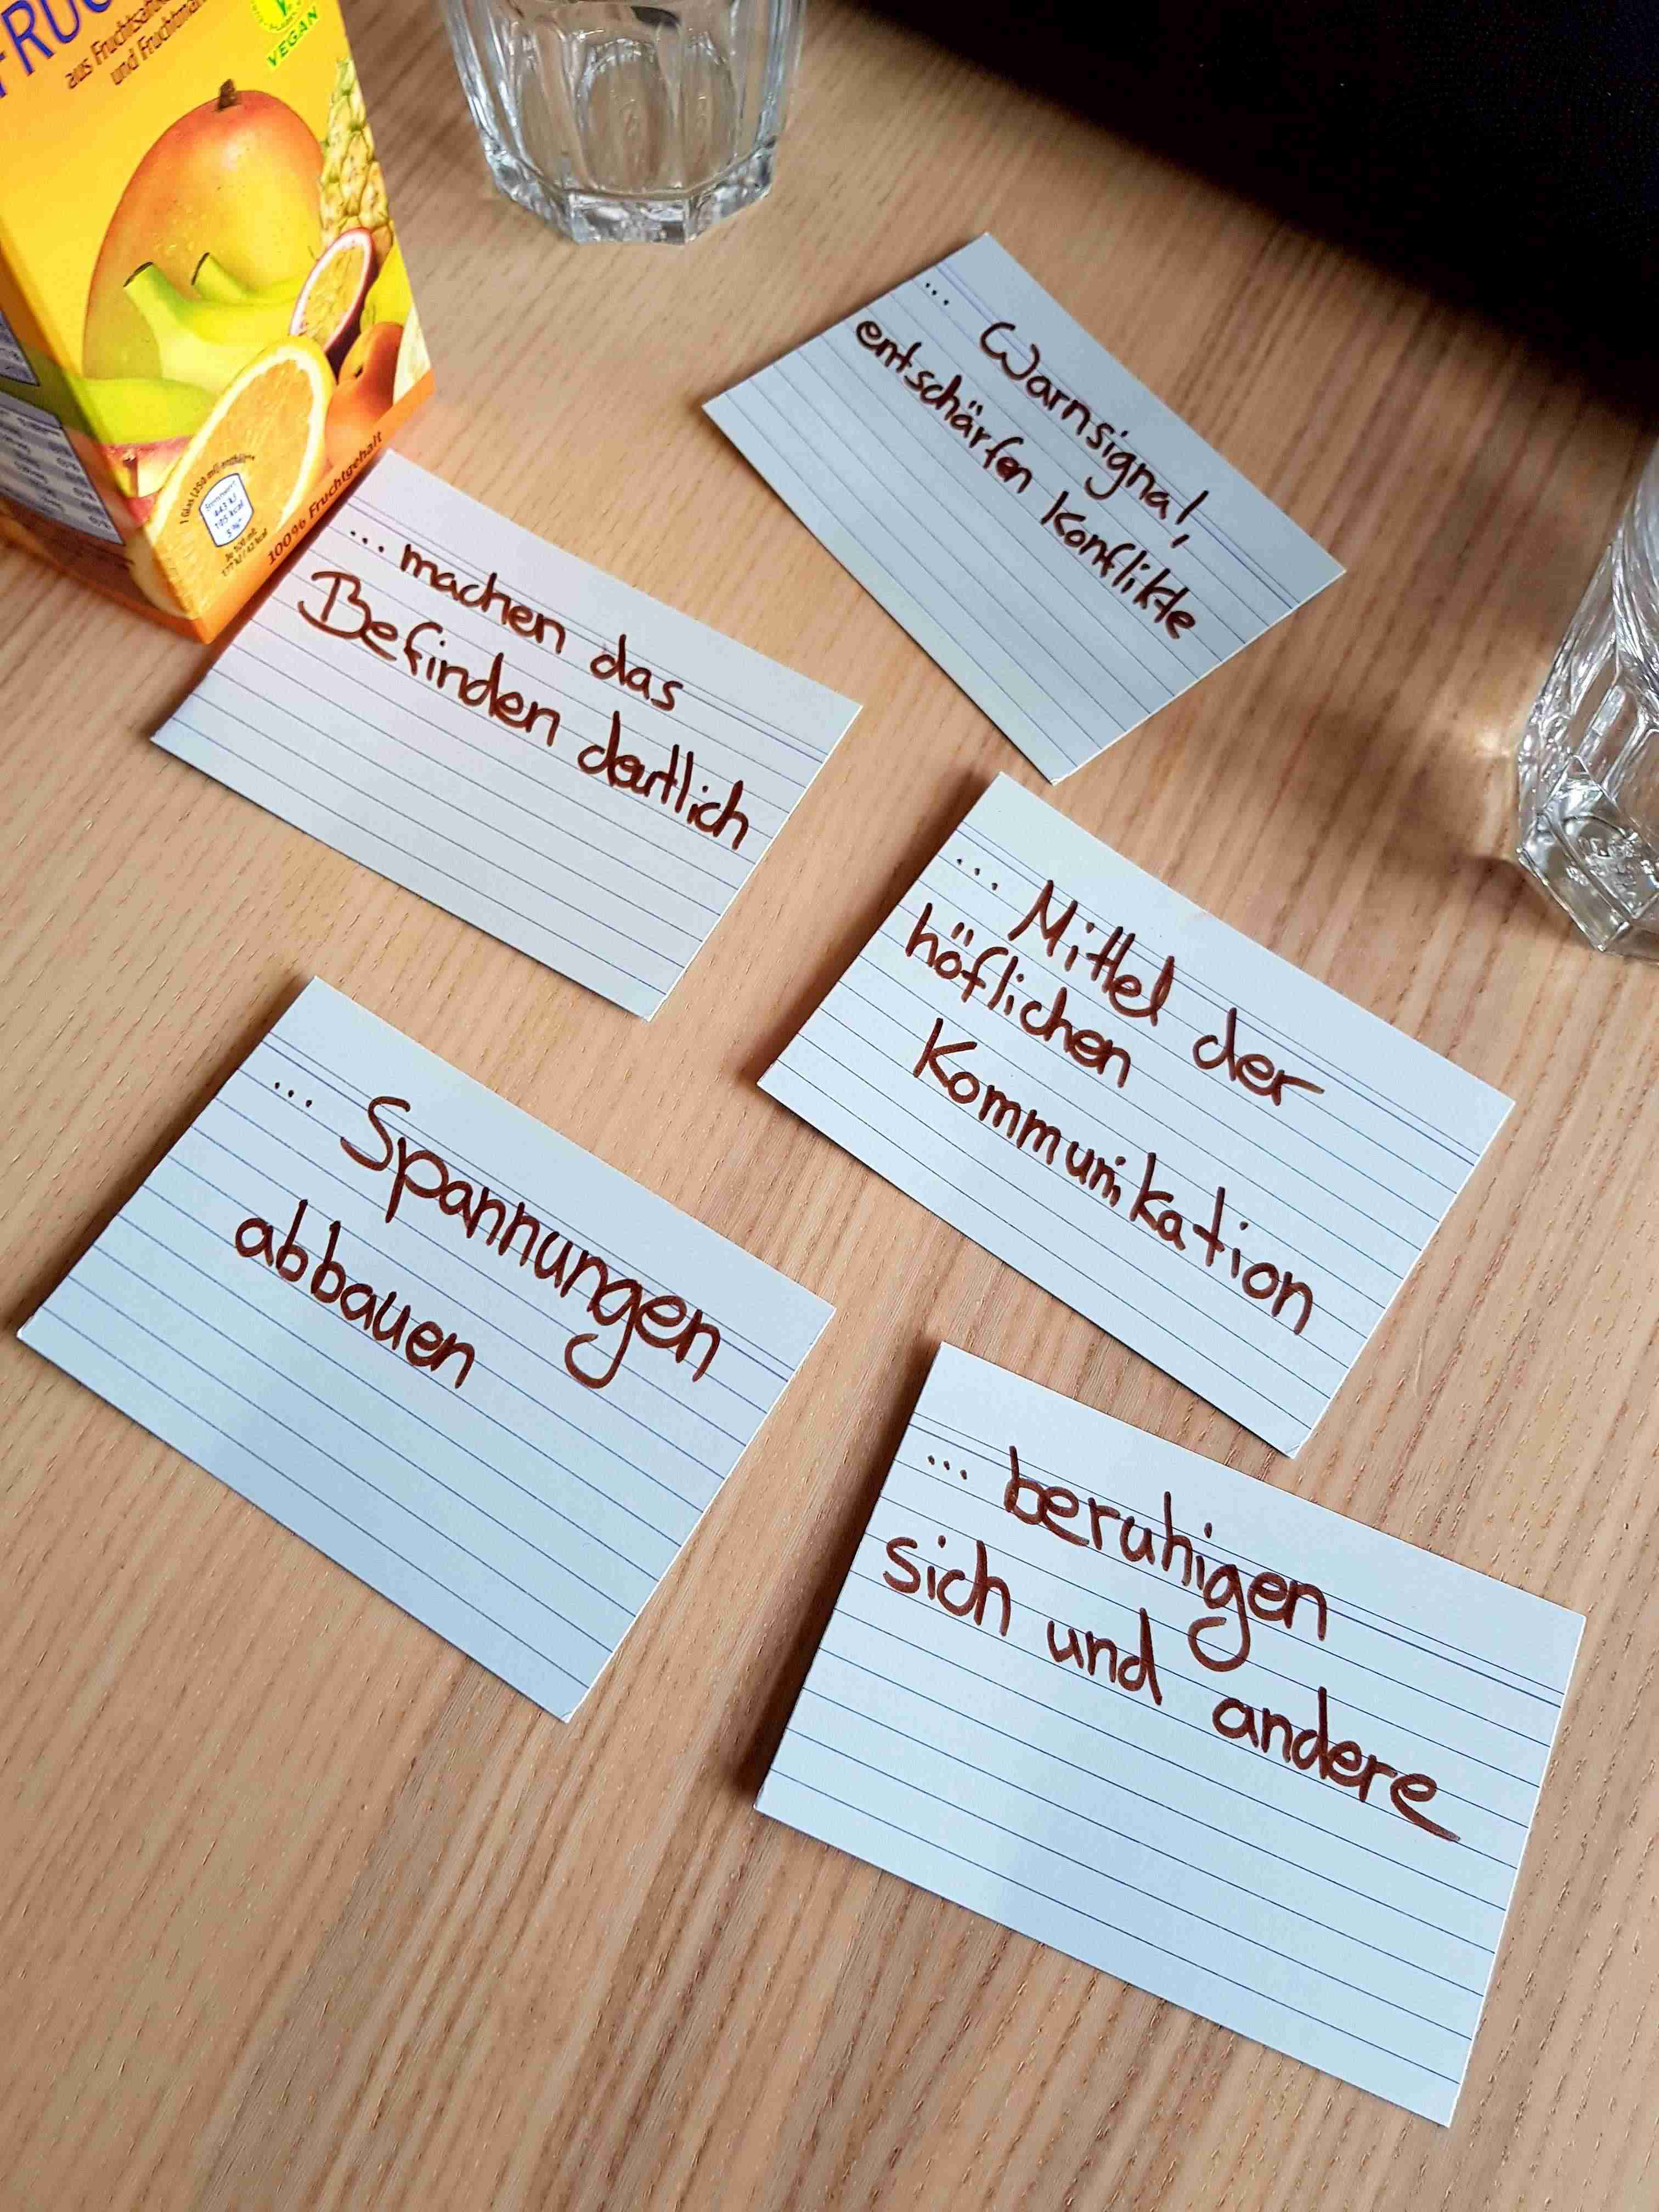 FRUC
aus Fruchtsaft
und Fruchtmark
VEGAN
1 Glas (250 ml) enthält:
Brennwert
443 kJ
105 kcal
5 %*
Je 100 ml:
177 kJ / 42 kcal
100% Fruchtgehalt
... Warnsignal,
entschärfen Konflikte
... machen das
Befinden deutlich
... Mittel der
höflichen
Kommunikation
... Spannungen
abbauen
... beruhigen
sich und andere